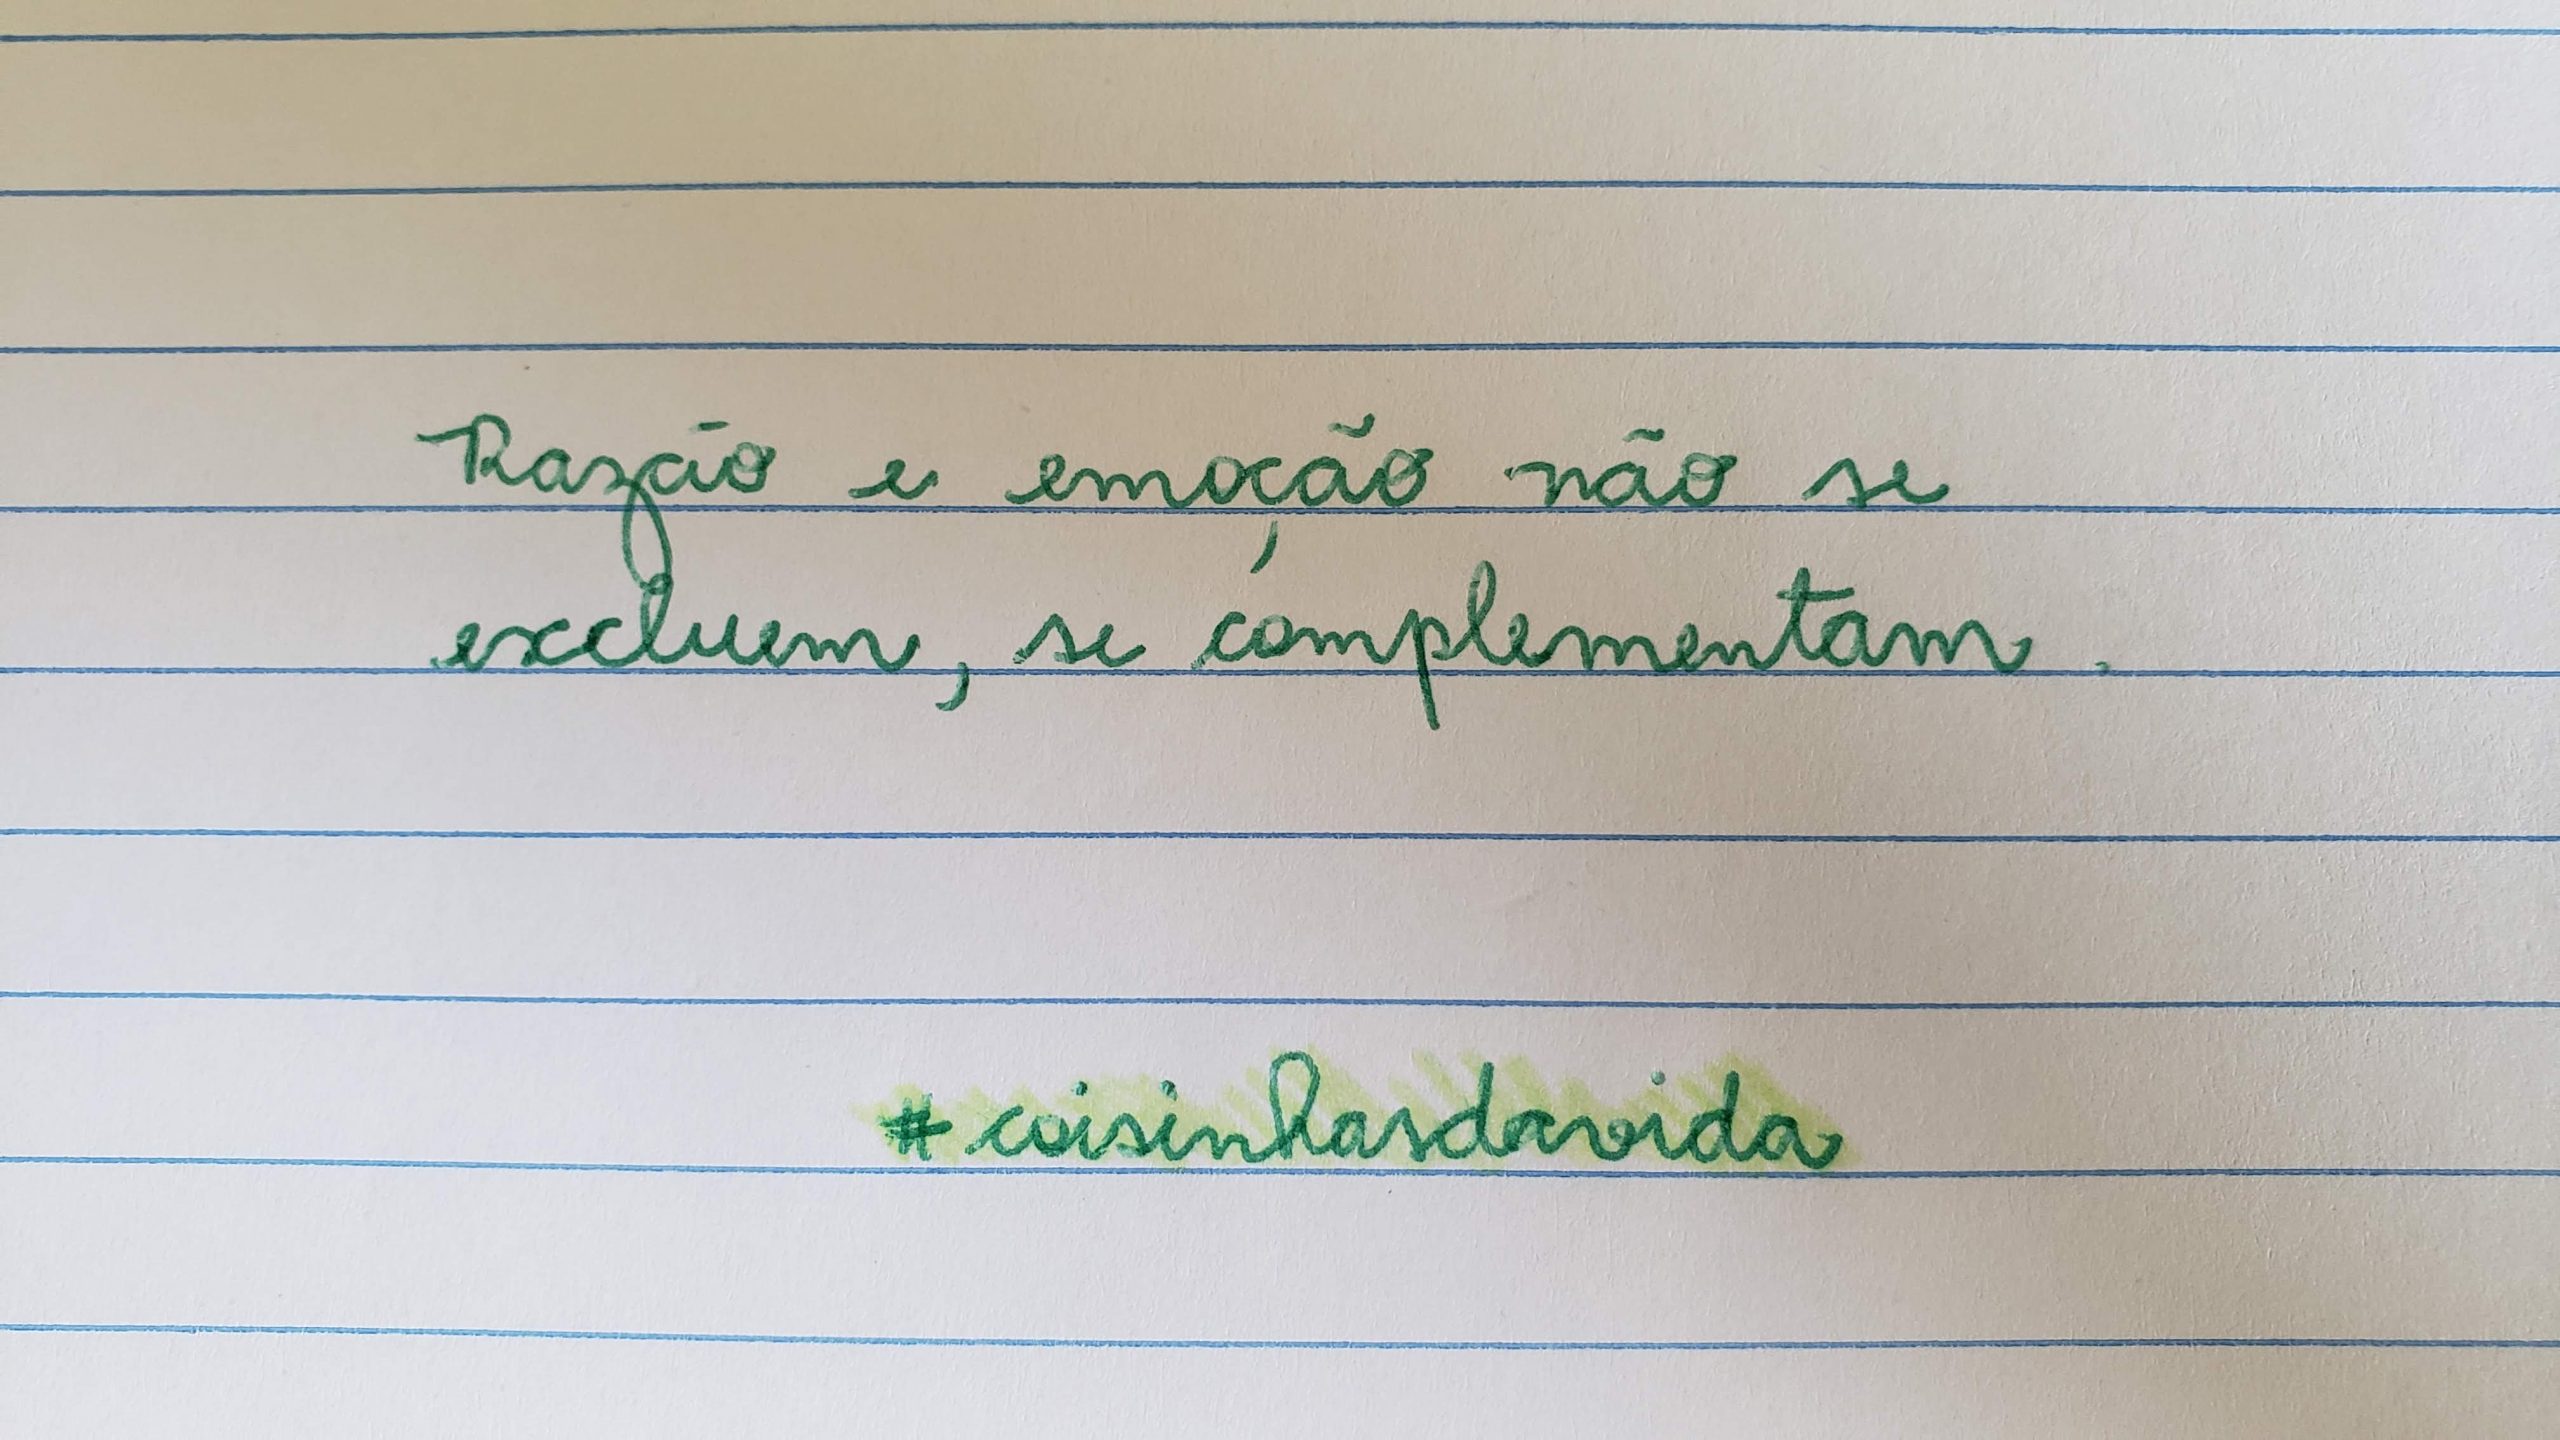 Razão e emoção não se
excluem, se complementam.
#coisinhasdavida